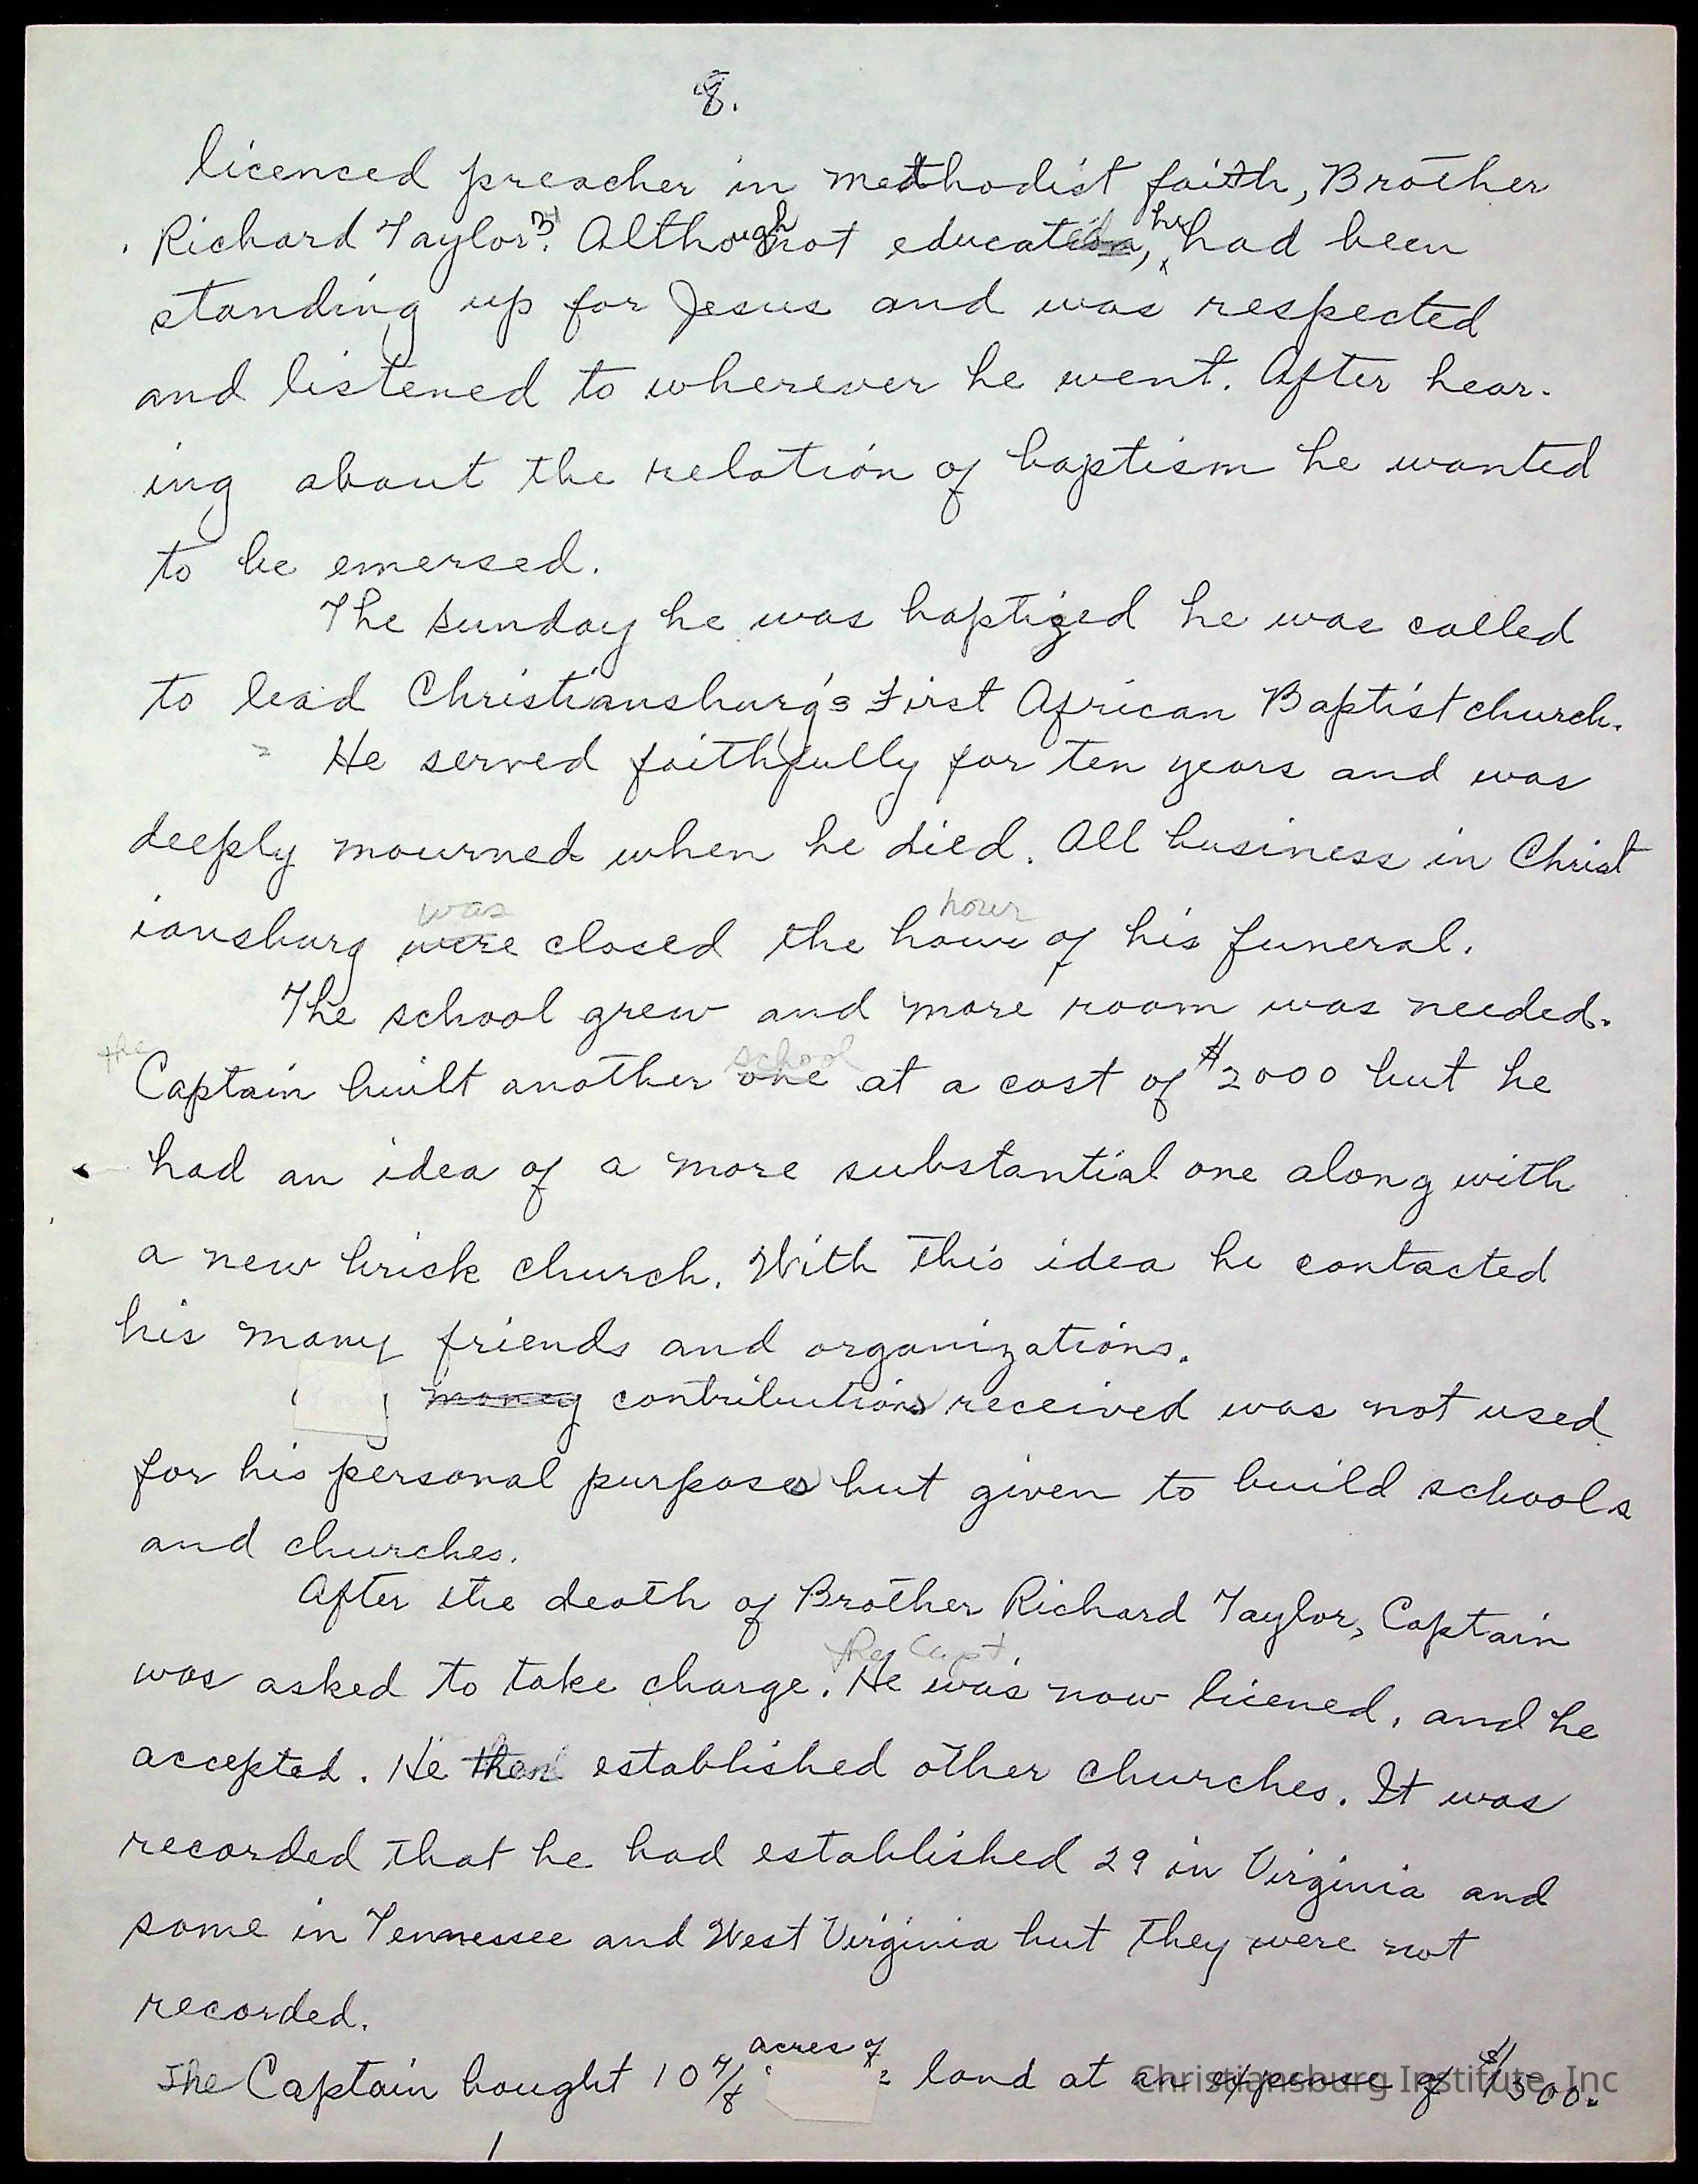 8.
licenced preacher in methodist faith, Brother
Richard Taylor. Although not educated, he had been
standing up for Jesus and was respected
and listened to wherever he went. After hear-
ing about the relation of baptism he wanted
to be emersed.
The Sunday he was baptized he was called
to lead Christiansburg's First African Baptist church.
He served faithfully for ten years and was
deeply mourned when he died. All business in Christ
was hour
iansburg were closed the hour of his funeral.
The school grew and more room was needed.
the school
Captain built another one at a cost of $2000 but he
had an idea of a more substantial one along with
a new brick church. With this idea he contacted
his many friends and organizations.
money contributions received was not used
for his personal purposes but given to build schools
and churches.
After the death of Brother Richard Taylor, Captain
The Capt
was asked to take charge. He was now licened, and he
accepted. He then established other churches. It was
recorded that he had established 29 in Virginia and
some in Tennessee and West Virginia but they were not
recorded.
acres of
The Captain bought 10 7/8 land at an expense of $1500.
Christiansburg Institute, Inc